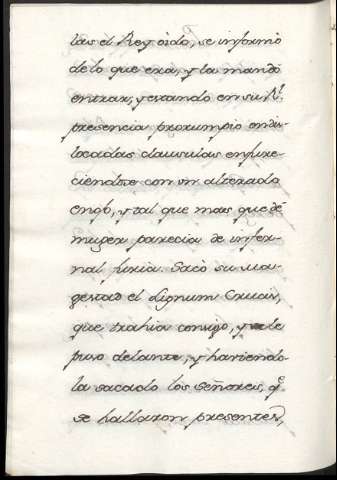 las el Rey oido, se informò
de lo que era, y la mandò
entrar, y estando en su Rl.
presencia prorumpio en dis-
locadas clausulas enfure-
ciendose con un alterado
engo, y tal que mas que de
muger parecia de infer-
nal furia. Sacò su ma-
gestad el Lignum Crucis,
que trahia consigo, y se le
puso delante, y haviendo-
la sacado los señores, q.e
se hallaron presentes,